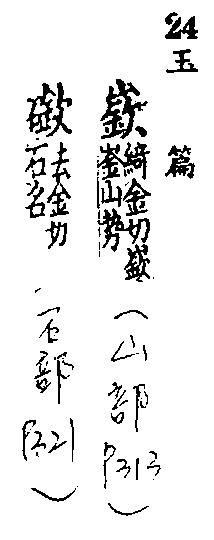 24 玉篇
嶔 綺金切嶔
崟山勢
(山部 P313)
去金切
石名
(石部 P321)